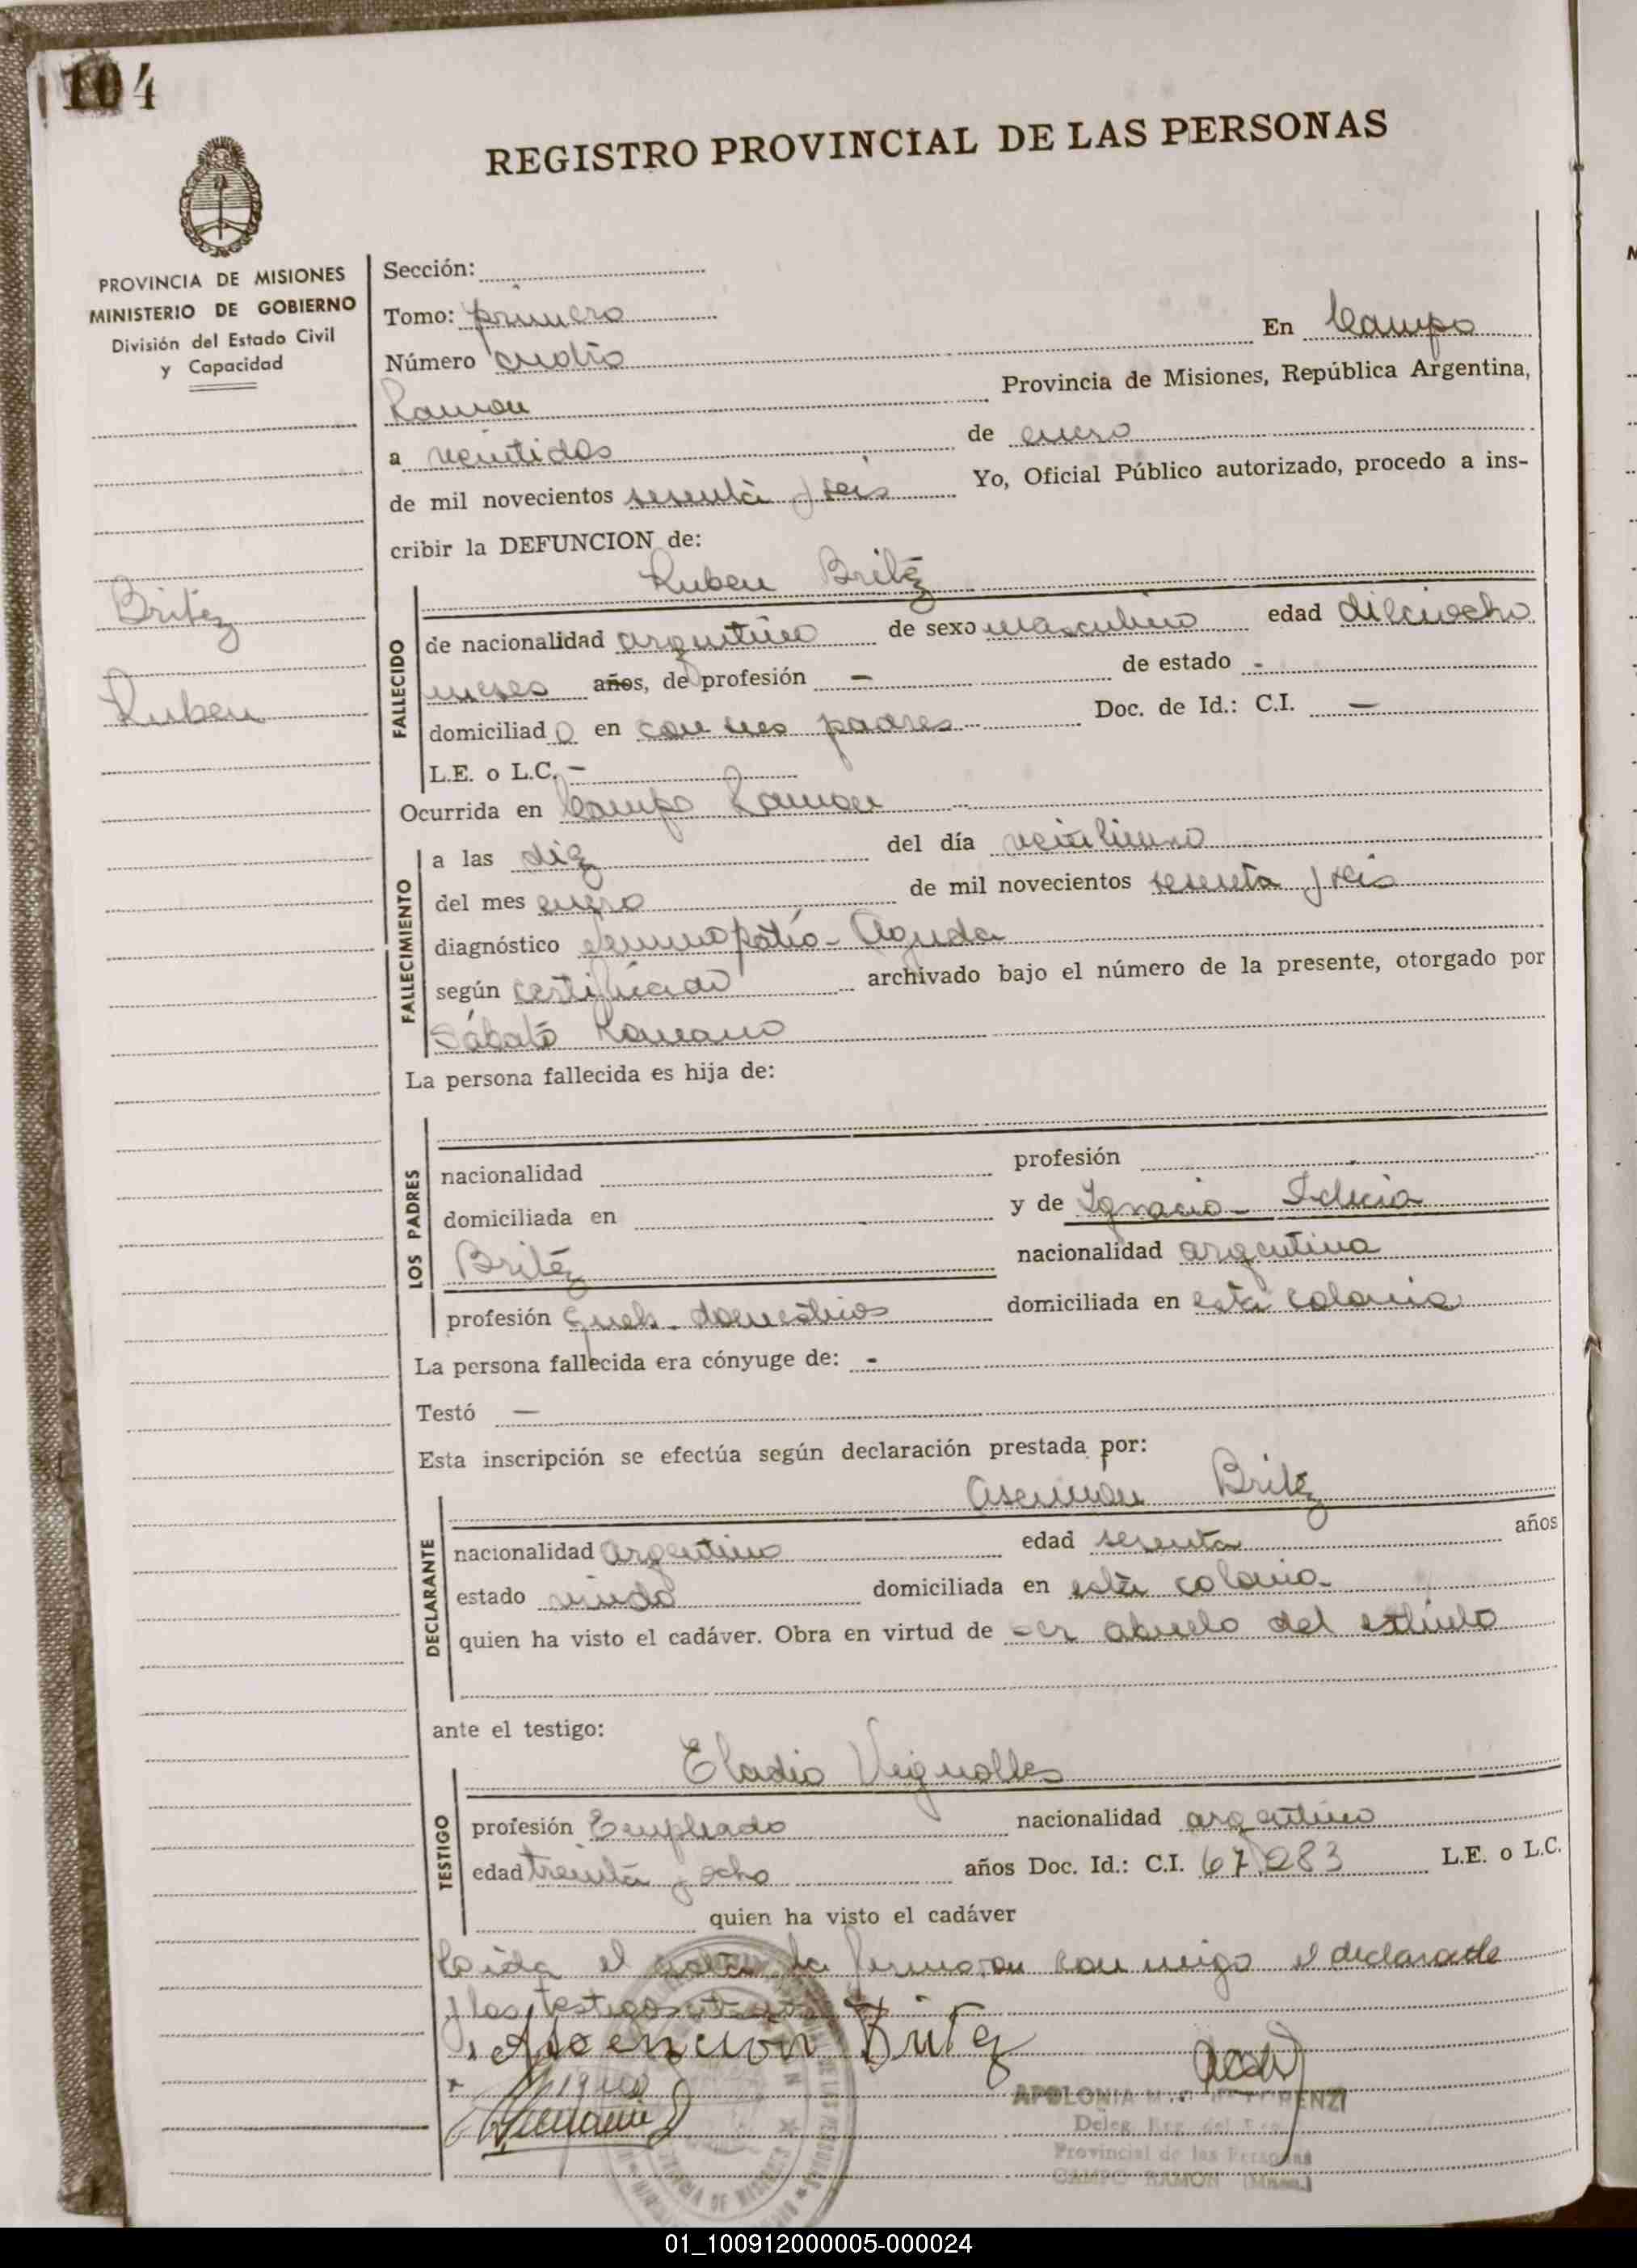 104
REGISTRO PROVINCIAL DE LAS PERSONAS
PROVINCIA DE MISIONES
MINISTERIO DE GOBIERNO
División del Estado Civil
y Capacidad
Britez
Ruben
Sección:
Tomo: primero
Número cuatro En Campo
Ramon Provincia de Misiones, República Argentina,
a veintidos de enero
de mil novecientos sesenta y seis Yo, Oficial Público autorizado, procedo a ins-
cribir la DEFUNCION de:
Ruben Britez
FALLECIDO
de nacionalidad argentino de sexo masculino edad dieciocho
meses años, de profesión - de estado -
domiciliado en con sus padres - Doc. de Id.: C.I. -
L.E. o L.C. -
Ocurrida en Campo Ramon
FALLECIMIENTO
a las diez del día veintiuno
del mes enero de mil novecientos sesenta y seis
diagnóstico Aguda
según certificado archivado bajo el número de la presente, otorgado por
Sábato Romano
La persona fallecida es hija de:
LOS PADRES
nacionalidad profesión
domiciliada en y de Ignacia
Britez nacionalidad argentina
profesión queh. domesticos domiciliada en esta colonia
La persona fallecida era cónyuge de: -
Testó -
Esta inscripción se efectúa según declaración prestada por:
Britez
DECLARANTE
nacionalidad argentino edad sesenta años
estado viudo domiciliada en esta colonia
quien ha visto el cadáver. Obra en virtud de ser abuelo del extinto
ante el testigo:
Eladio Vignolles
TESTIGO
profesión Empleado nacionalidad argentino
edad treinta y ocho años Doc. Id.: C.I. 67.283 L.E. o L.C.
quien ha visto el cadáver
Leida el acta la firmaron conmigo el declarante
y los testigos
Asencion Britez
APOLONIA
Deleg. Reg. del
Provincial de las Personas
CAMPO RAMON (Mnes.)
01_100912000005-000024